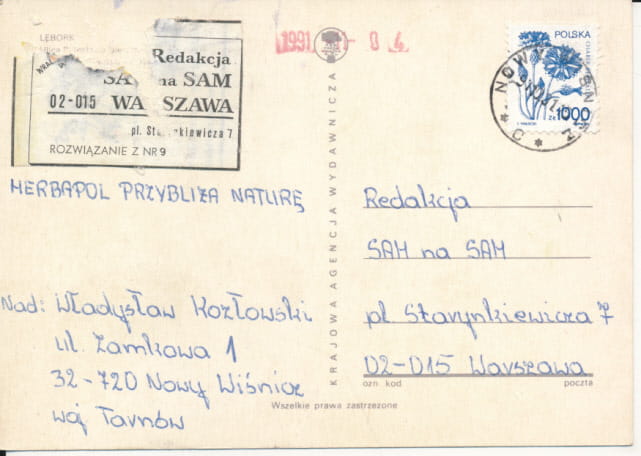 LĘBORK
Redakcja
SAM na SAM
02-015 WARSZAWA
pl. Starynkiewicza 7
ROZWIĄZANIE Z NR 9
HERBAPOL PRZYBLIŻA NATURĘ
Nad: Władysław Kozłowski
ul. Zamkowa 1
32-720 Nowy Wiśnicz
woj Tarnów
KRAJOWA AGENCJA WYDAWNICZA
1991 - 0 4
POLSKA
CHABER
zł 1000
NOWY WIŚNICZ
C
Redakcja
SAM na SAM
pl. Starynkiewicza 7
02-015 Warszawa
ozn kod poczta
Wszelkie prawa zastrzeżone